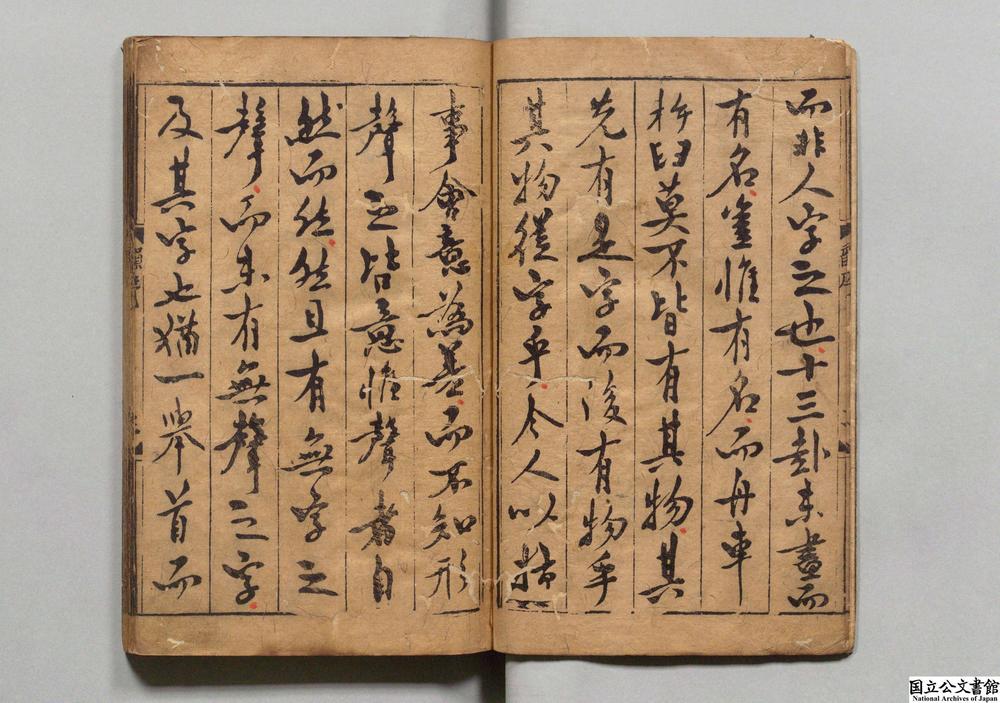 而非人字之也十三卦未畫而
有名奎惟有名而舟車
杵臼莫不皆有其物其
先有是字而後有物乎
其物從字乎今人以指
事會意為善而不知形
聲之皆意惟聲者自
然而然然且有無字之
聲而未有無聲之字
及其字也猶一舉首而
国立公文書館
National Archives of Japan